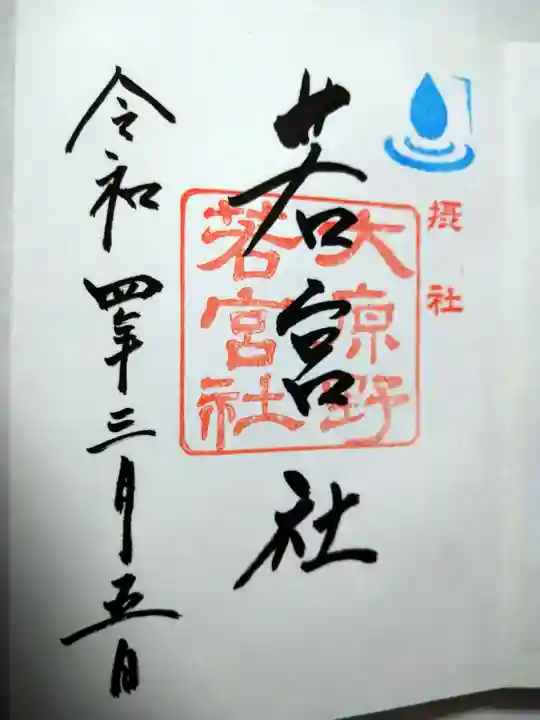 摂社
若宮社
大原野
若宮社
令和四年三月五日